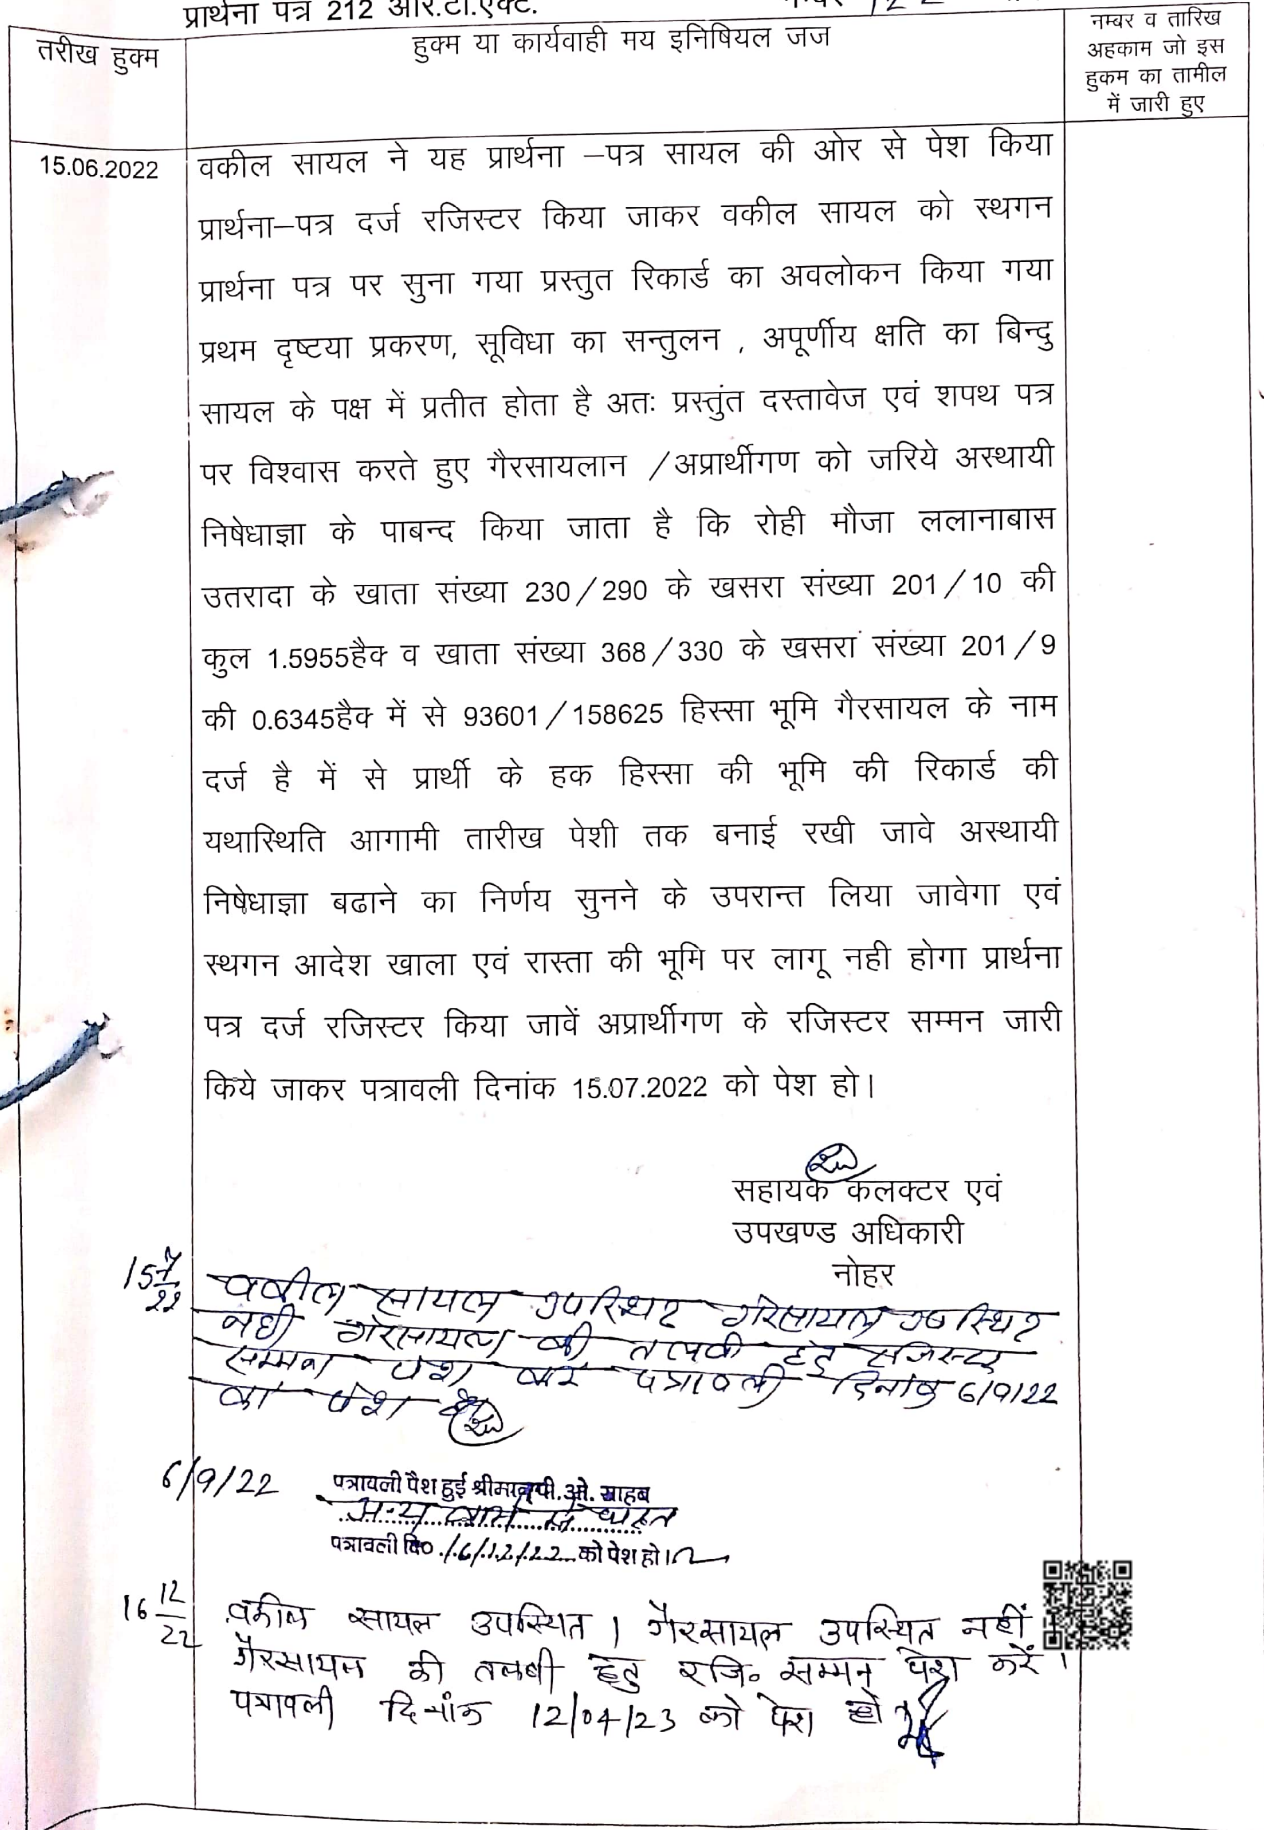 प्रार्थना पत्र 212 आर.टी.एक्ट.
तरीख हुक्म
हुक्म या कार्यवाही मय इनिषियल जज
नम्बर व तारिख
अहकाम जो इस
हुकम का तामील
में जारी हुए
15.06.2022
वकील सायल ने यह प्रार्थना –पत्र सायल की ओर से पेश किया
प्रार्थना–पत्र दर्ज रजिस्टर किया जाकर वकील सायल को स्थगन
प्रार्थना पत्र पर सुना गया प्रस्तुत रिकार्ड का अवलोकन किया गया
प्रथम दृष्टया प्रकरण, सूविधा का सन्तुलन , अपूर्णीय क्षति का बिन्दु
सायल के पक्ष में प्रतीत होता है अतः प्रस्तुंत दस्तावेज एवं शपथ पत्र
पर विश्वास करते हुए गैरसायलान /अप्रार्थीगण को जरिये अस्थायी
निषेधाज्ञा के पाबन्द किया जाता है कि रोही मौजा ललानाबास
उतरादा के खाता संख्या 230/290 के खसरा संख्या 201/10 की
कुल 1.5955हैक व खाता संख्या 368/330 के खसरा संख्या 201/9
की 0.6345हैक में से 93601/158625 हिस्सा भूमि गैरसायल के नाम
दर्ज है में से प्रार्थी के हक हिस्सा की भूमि की रिकार्ड की
यथास्थिति आगामी तारीख पेशी तक बनाई रखी जावे अस्थायी
निषेधाज्ञा बढाने का निर्णय सुनने के उपरान्त लिया जावेगा एवं
स्थगन आदेश खाला एवं रास्ता की भूमि पर लागू नही होगा प्रार्थना
पत्र दर्ज रजिस्टर किया जावें अप्रार्थीगण के रजिस्टर सम्मन जारी
किये जाकर पत्रावली दिनांक 15.07.2022 को पेश हो।
सहायक कलक्टर एवं
उपखण्ड अधिकारी
नोहर
15 7/22
वकील सायल उपस्थित गैरसायल उपस्थित
नही गैरसायल की तलबी हेतु रजिस्टर
सम्मन पेश करें पत्रावली दिनांक 6/9/22
को पेश हो
6/9/22
पत्रावली पेश हुई श्रीमान् पी.ओ. साहब
अन्य कार्य में व्यस्त
पत्रावली दि० 16/12/22 को पेश हो।
16 12/22
वकील सायल उपस्थित । गैरसायल उपस्थित नहीं
गैरसायल की तलबी हेतु रजि० सम्मन पेश करें ।
पत्रावली दिनांक 12/04/23 को पेश हो